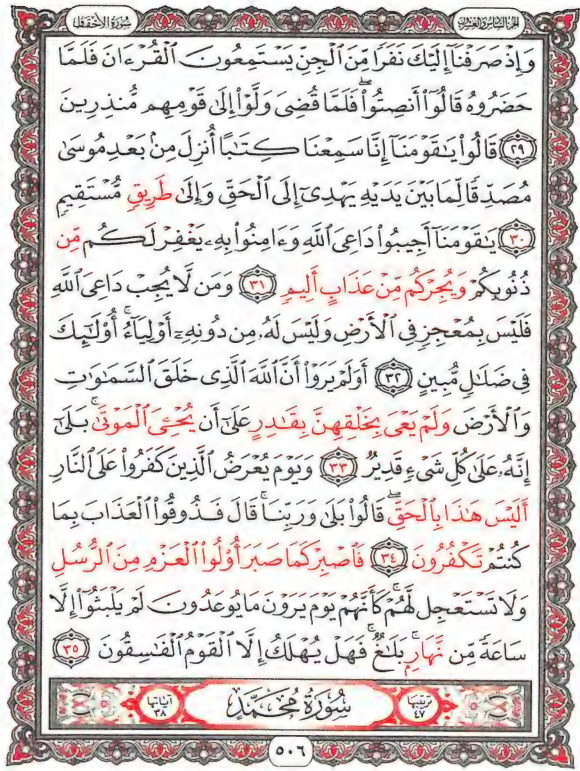 سُورَةُ الأَحْقَافِ
الجزء السادس والعشرون
وَإِذْ صَرَفْنَآ إِلَيْكَ نَفَرًا مِّنَ ٱلْجِنِّ يَسْتَمِعُونَ ٱلْقُرْءَانَ فَلَمَّا
حَضَرُوهُ قَالُوٓا۟ أَنصِتُوا۟ۖ فَلَمَّا قُضِىَ وَلَّوْا۟ إِلَىٰ قَوْمِهِم مُّنذِرِينَ
٢٩ قَالُوا۟ يَٰقَوْمَنَآ إِنَّا سَمِعْنَا كِتَٰبًا أُنزِلَ مِنۢ بَعْدِ مُوسَىٰ
مُصَدِّقًا لِّمَا بَيْنَ يَدَيْهِ يَهْدِىٓ إِلَى ٱلْحَقِّ وَإِلَىٰ طَرِيقٍ مُّسْتَقِيمٍ
٣٠ يَٰقَوْمَنَآ أَجِيبُوا۟ دَاعِىَ ٱللَّهِ وَءَامِنُوا۟ بِهِۦ يَغْفِرْ لَكُم مِّن
ذُنُوبِكُمْ وَيُجِرْكُم مِّنْ عَذَابٍ أَلِيمٍ ٣١ وَمَن لَّا يُجِبْ دَاعِىَ ٱللَّهِ
فَلَيْسَ بِمُعْجِزٍ فِى ٱلْأَرْضِ وَلَيْسَ لَهُۥ مِن دُونِهِۦٓ أَوْلِيَآءُۚ أُو۟لَٰٓئِكَ
فِى ضَلَٰلٍ مُّبِينٍ ٣٢ أَوَلَمْ يَرَوْا۟ أَنَّ ٱللَّهَ ٱلَّذِى خَلَقَ ٱلسَّمَٰوَٰتِ
وَٱلْأَرْضَ وَلَمْ يَعْىَ بِخَلْقِهِنَّ بِقَٰدِرٍ عَلَىٰٓ أَن يُحْۦِىَ ٱلْمَوْتَىٰۚ بَلَىٰٓ
إِنَّهُۥ عَلَىٰ كُلِّ شَىْءٍ قَدِيرٌ ٣٣ وَيَوْمَ يُعْرَضُ ٱلَّذِينَ كَفَرُوا۟ عَلَى ٱلنَّارِ
أَلَيْسَ هَٰذَا بِٱلْحَقِّۖ قَالُوا۟ بَلَىٰ وَرَبِّنَاۚ قَالَ فَذُوقُوا۟ ٱلْعَذَابَ بِمَا
كُنتُمْ تَكْفُرُونَ ٣٤ فَٱصْبِرْ كَمَا صَبَرَ أُو۟لُوا۟ ٱلْعَزْمِ مِنَ ٱلرُّسُلِ
وَلَا تَسْتَعْجِل لَّهُمْۚ كَأَنَّهُمْ يَوْمَ يَرَوْنَ مَا يُوعَدُونَ لَمْ يَلْبَثُوٓا۟ إِلَّا
سَاعَةً مِّن نَّهَارٍۭۚ بَلَٰغٌۚ فَهَلْ يُهْلَكُ إِلَّا ٱلْقَوْمُ ٱلْفَٰسِقُونَ ٣٥
ترتيبها ٤٧ سُورَةُ مُحَمَّدٍ آياتها ٣٨
٥٠٦